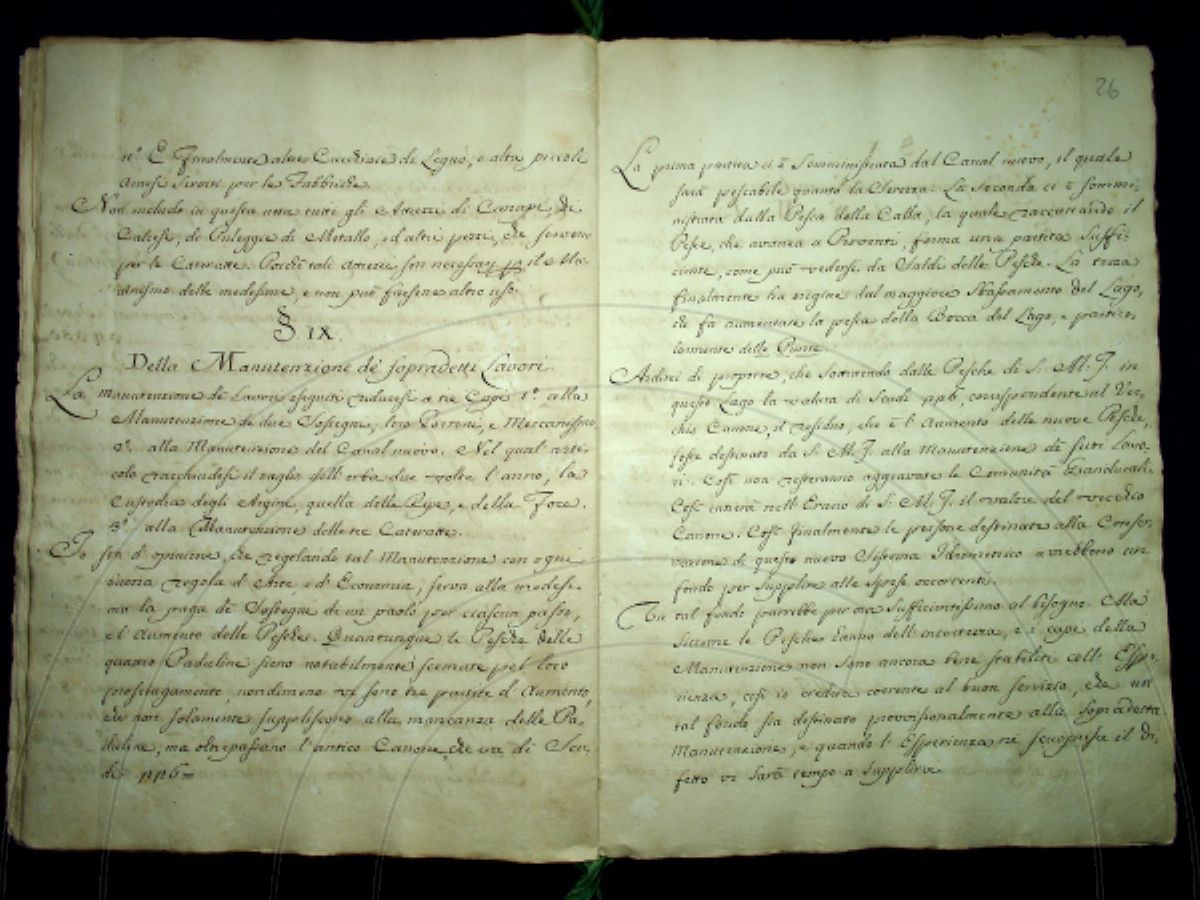 n.° E Finalmente altre Cucchiaie di Legno, e altri piccoli
Arnesi Serviti per le Fabbriche.
Non includo in questa nota tutti gli Attrezzi di Canape, di
Calcese, di Pulegge di Metallo, ed altri pezzi, che servono
per le Cateratte. Perchè tali Attrezzi son necessarj p il Me-
canismo delle medesime, e non può farsene altro uso.
§. IX.
Della Manutenzione de' sopradetti Lavori.
La manutenzione de' Lavori eseguiti riducesi a tre Capi 1.° alla
Manutenzione di due Sostegni, loro Portoni, e Meccanismo
2.° alla Manutenzione del Canal nuovo. Nel qual arti-
colo racchiudesi il taglio dell'erba due volte l'anno, la
Custodia degli Argini, quella delle Ripe, e della Foce.
3.° alla Manutenzione delle tre Cateratte.
Io son d'opinione, che regolando tal Manutenzione con ogni
buona regola d'Arte e d'Economia, serva alla medesi-
ma la paga de' Sostegni di un paolo per ciascun passo,
e l'Aumento delle Pesche. Quantunque le Pesche delle
quattro Paduline sieno notabilmente scemate pel loro
prosciugamento, nondimeno vi sono tre partite d'Aumento,
che non solamente suppliscono alla mancanza delle Pa-
duline, ma oltrepassano l'antico Canone, che era di Scu-
di
26
La prima partita ci è Somministrata dal Canal nuovo, il quale
sarà pescabile quanto la Serezza. La Seconda ci è sommi-
nistrata dalla Pesca della Calla, la quale raccogliendo il
Pesce, che avanza a Paventi, forma una partita suffi-
ciente, come può vedersi da Saldi delle Pesche. La terza
finalmente ha origine dal maggiore Abbassamento del Lago,
che fa aumentare la pesca della Bocca del Lago, e partico-
larmente delle Punte.
Ardirei di proporre, che Sottraendo dalle Pesche di S. M. I. in
questo Lago la valuta di Scudi corrispondente al Vec-
chio Canone, il residuo, che è l'Aumento delle nuove Pesche,
fosse destinato da S. M. I. alla Manutenzione de' fatti Lavo-
ri. Così non resteranno aggravate le Comunità Granducali.
Così entrerà nell'Erario di S. M. I. il valore del vecchio
Canone. Così finalmente le persone destinate alla Conser-
vazione di questo nuovo Sistema Idrometrico avrebbono un
fondo per supplire alle spese occorrenti.
Un tal fondo parrebbe per ora sufficientissimo al bisogno. Ma
siccome le Pesche hanno dell'incertezza, e i capi della
Manutenzione non sono ancora bene stabiliti coll'Espe-
rienza, così io crederei coerente al buon servizio, che un
tal fondo sia destinato provvisionalmente alla sopradetta
Manutenzione, e quando l'Esperienza ne scuoprisse il di-
fetto vi sarà tempo a supplirvi.